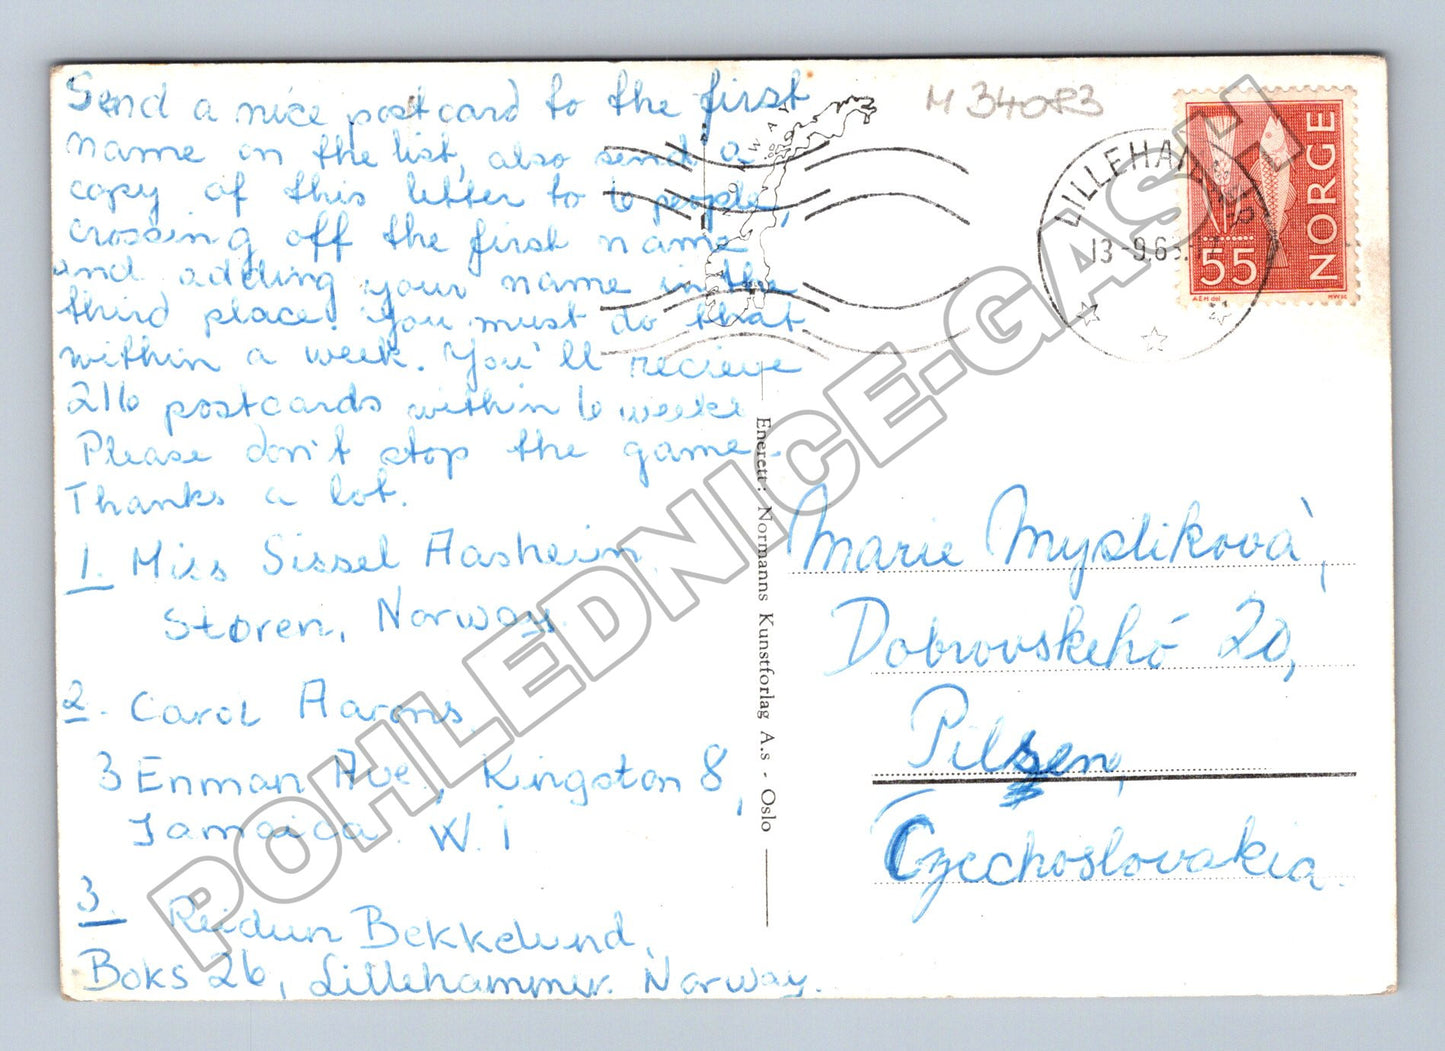 Send a nice postcard to the first
name on the list, also send a
copy of this letter to 6 people,
crossing off the first name
and adding your name in the
third place. You must do that
within a week. You'll recieve
216 postcards within 6 weeks
Please don't stop the game.
Thanks a lot.
1. Miss Sissel Aasheim,
Støren, Norway.
2. Carol Aarons,
3 Enman Ave., Kingston 8,
Jamaica W.I
3. Reidun Bekkelund,
Boks 26, Lillehammer. Norway.
Enerett: Normanns Kunstforlag A.s - Oslo
M 34083
NORWAY
LILLEHAMMER
13-9.6
NORGE
55
Marie Myslikova,
Dobrovskehó 20,
Pilsen,
Czechoslovakia.
POHLEDNICE-GASH